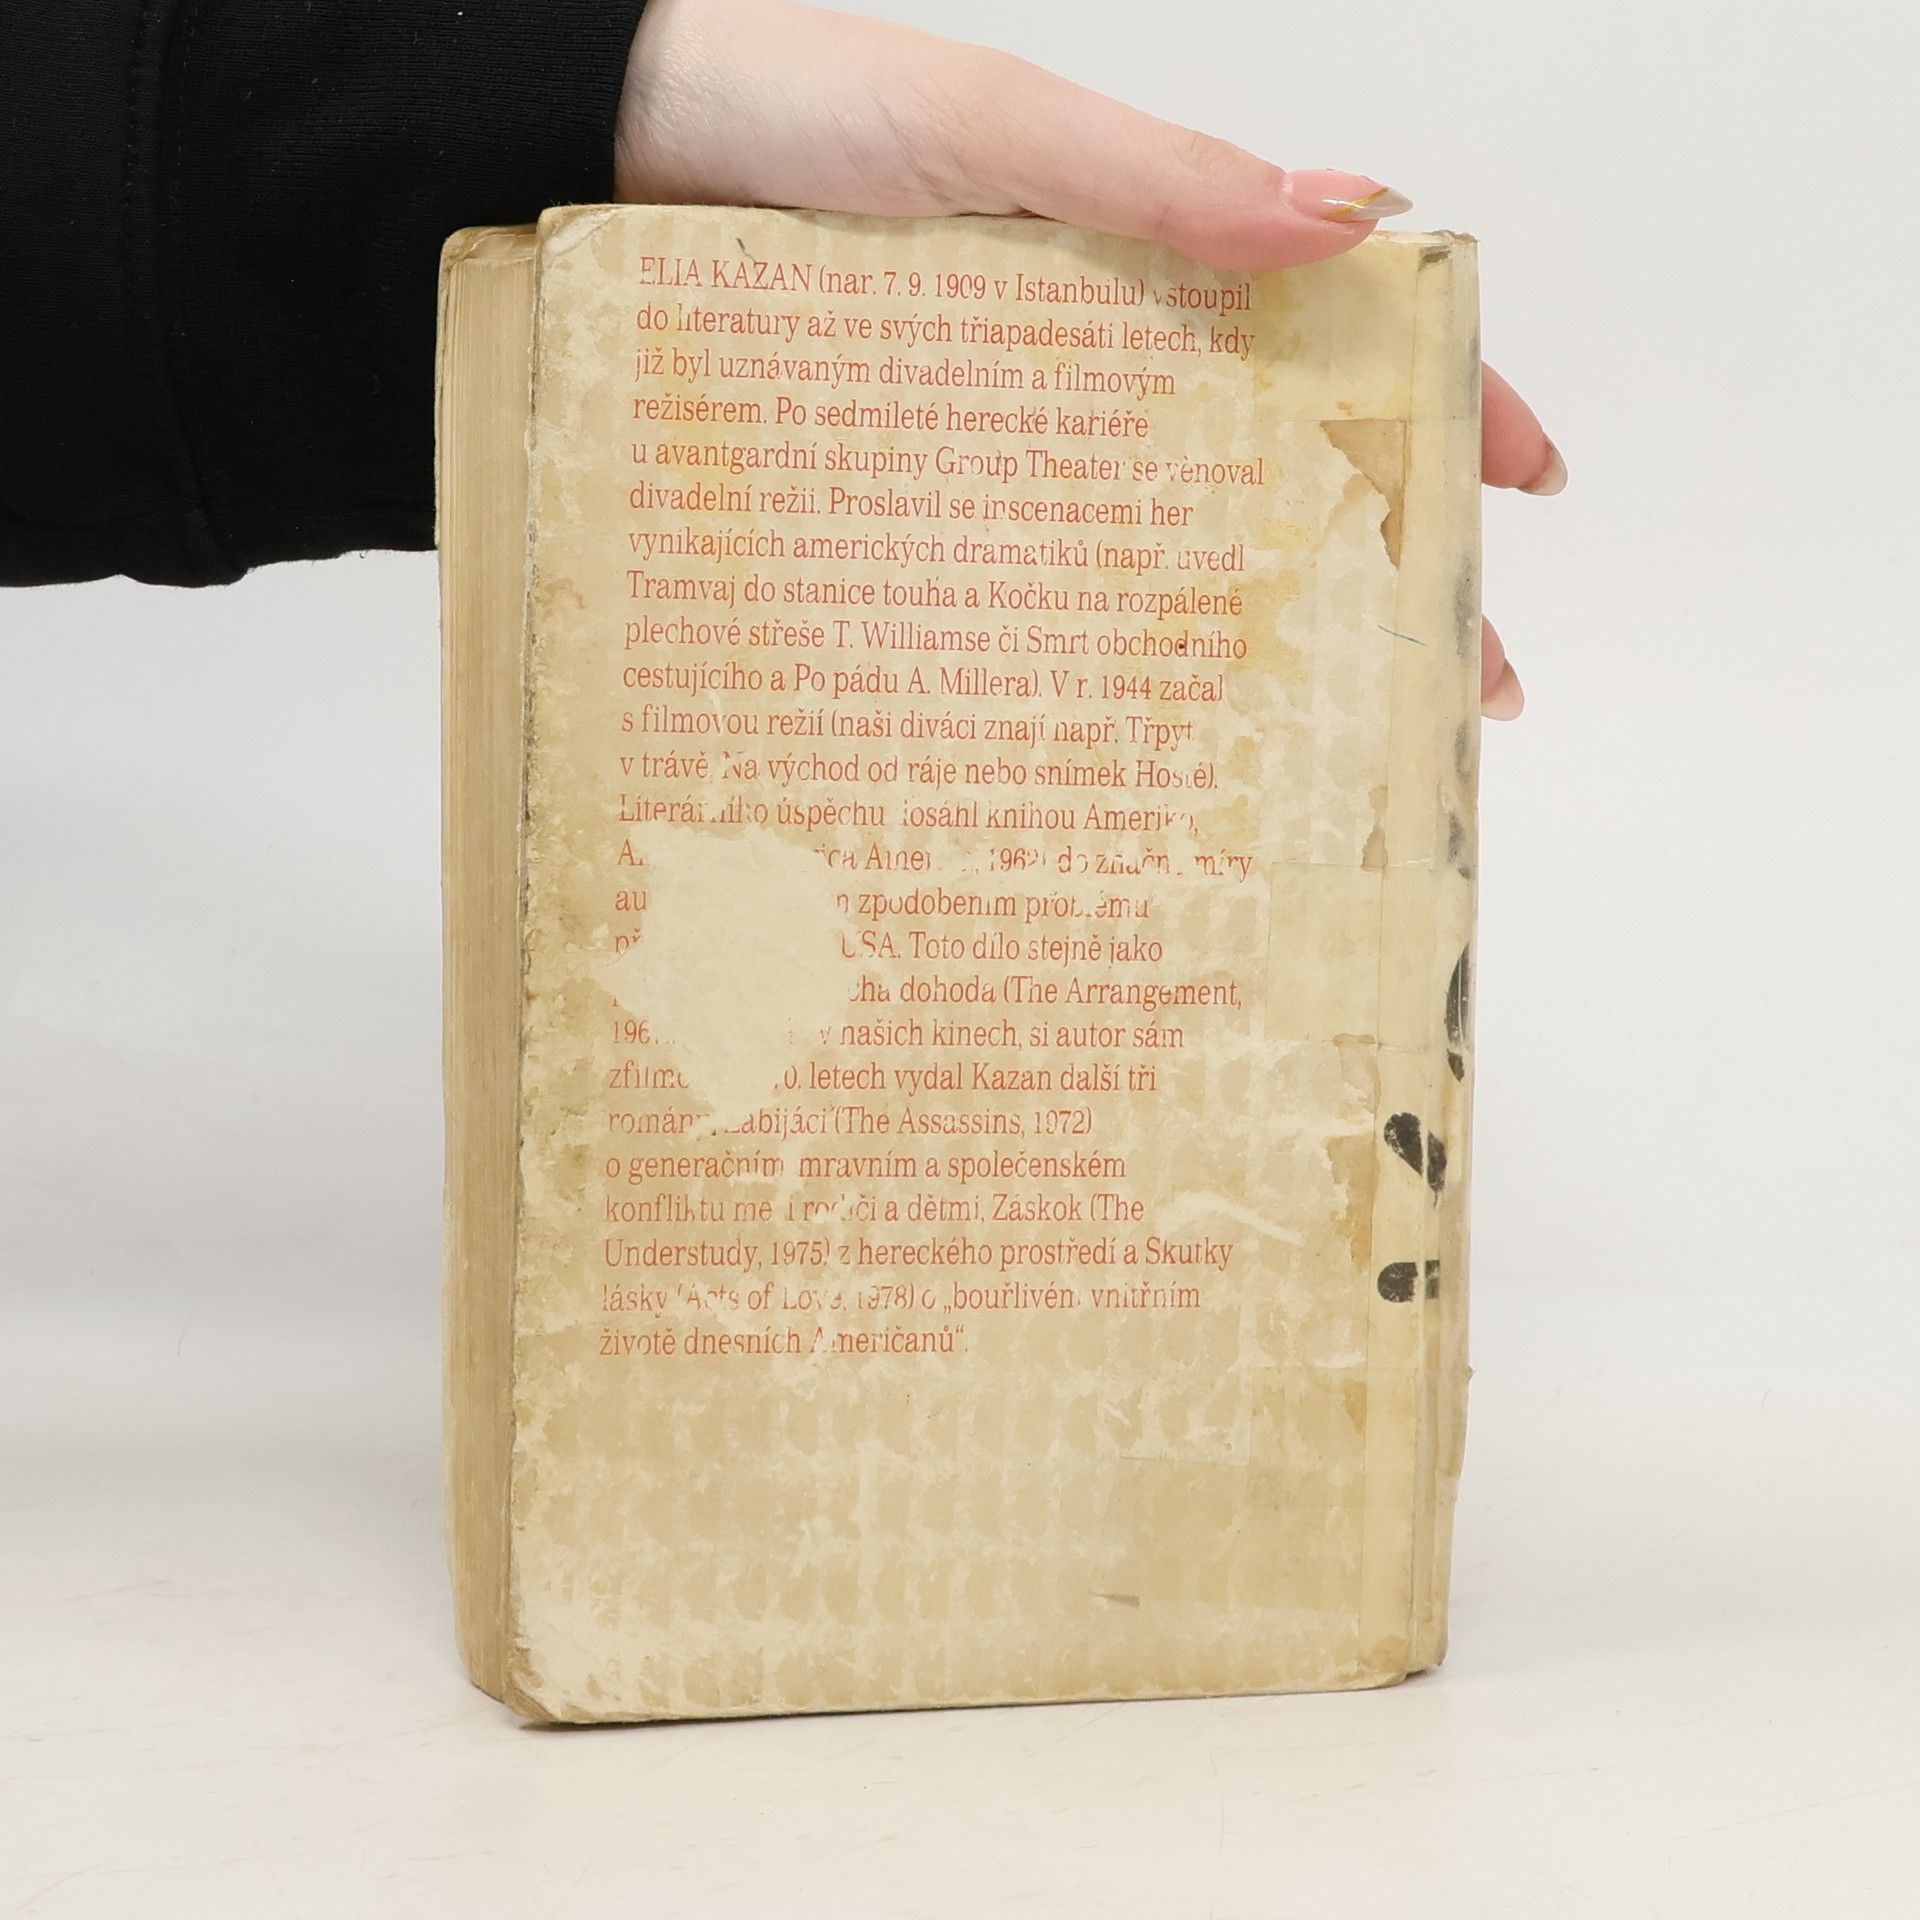 ELIA KAZAN (nar. 7. 9. 1909 v Istanbulu) vstoupil
do literatury až ve svých třiapadesáti letech, kdy
již byl uznávaným divadelním a filmovým
režisérem. Po sedmileté herecké kariéře
u avantgardní skupiny Group Theater se věnoval
divadelní režii. Proslavil se inscenacemi her
vynikajících amerických dramatiků (např. uvedl
Tramvaj do stanice touha a Kočku na rozpálené
plechové střeše T. Williamse či Smrt obchodního
cestujícího a Po pádu A. Millera). V r. 1944 začal
s filmovou režií (naši diváci znají např. Třpyt
v trávě, Na východ od ráje nebo snímek Hosté).
Literárního úspěchu dosáhl knihou Ameriko,
do značné míry
zpodobením problému
USA. Toto dílo stejně jako
dohoda (The Arrangement,
v našich kinech, si autor sám
letech vydal Kazan další tři
romány, Zabijáci (The Assassins, 1972)
o generačním, mravním a společenském
konfliktu mezi rodiči a dětmi, Záskok (The
Understudy, 1975) z hereckého prostředí a Skutky
lásky (Acts of Love, 1978) o „bouřlivém vnitřním
životě dnešních Američanů“.